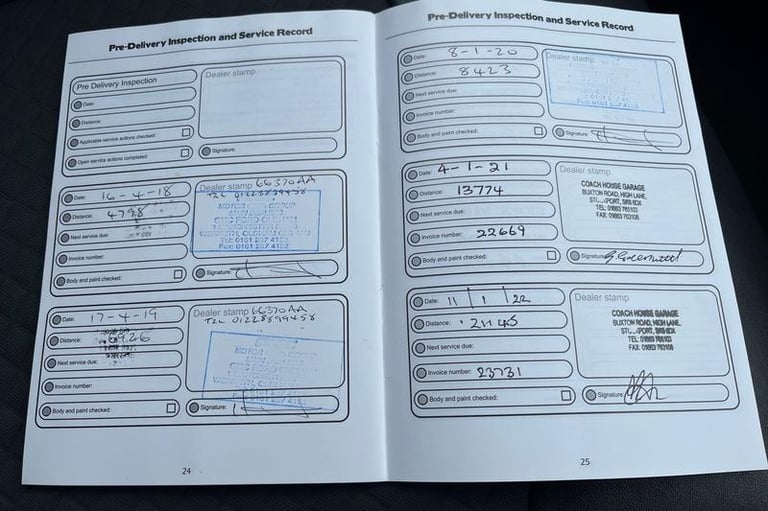 Pre-Delivery Inspection and Service Record
Pre Delivery Inspection
Date:
Distance:
Applicable service actions checked:
Open service actions completed:
Dealer stamp
Signature:
Date: 16-4-18
Distance: 4798
Next service due:
Invoice number:
Body and paint checked:
Dealer stamp 66370AA
TEL 01228899458
Signature:
Date: 17-4-19
Distance: 6926
Next service due:
Invoice number:
Body and paint checked:
Dealer stamp 66370AA
TEL 01228899458
Signature:
24
Pre-Delivery Inspection and Service Record
Date: 8-1-20
Distance: 8423
Next service due:
Invoice number:
Body and paint checked:
Dealer stamp
Signature:
Date: 4-1-21
Distance: 13774
Next service due:
Invoice number: 22669
Body and paint checked:
Dealer stamp
COACH HOUSE GARAGE
BUXTON ROAD, HIGH LANE,
TEL: 01663 765103
FAX: 01663 763108
Signature: G Greenwood
Date: 11/1/22
Distance: 21145
Next service due:
Invoice number: 23731
Body and paint checked:
Dealer stamp
COACH HOUSE GARAGE
BUXTON ROAD, HIGH LANE,
Signature:
25